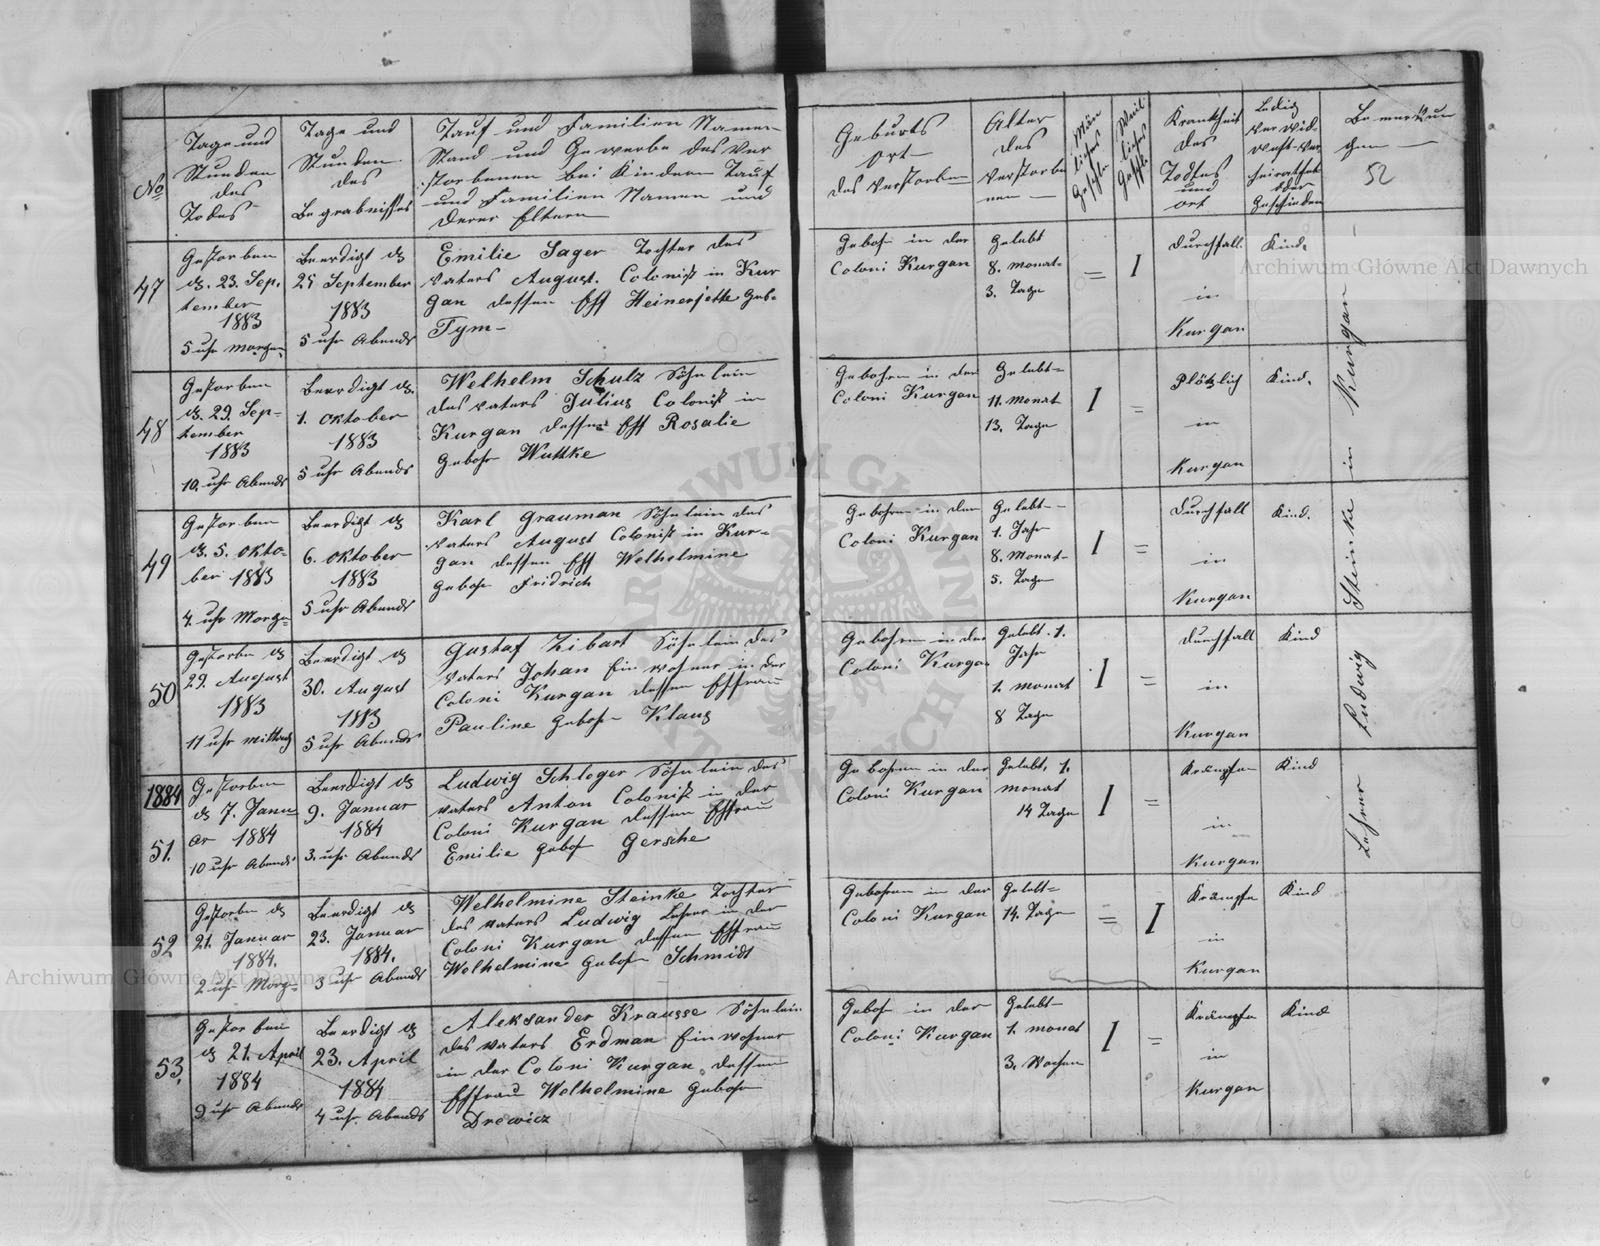 No
Tage und
Stunden
des
Todes
Tage und
Stunden
des
Begrabnisses
Tauf und Familien Namen
Stand und Gewerbe des Ver
storbenen bei Kindern Tauf
und Familien Namen und
derer Eltern
Geburts
ort
des Verstorbenen
Alter
des
Verstorbe
nen
Män
liches
Geschl.
Weib
liches
Geschl.
Krankheit
des
Todtes
und
ort
Ledig
verwid-
wett-ver
heirathet
oder
Geschieden
Bemerkun
gen
52
47
Gestorben
d. 23. Sep.
tember
1883
5 uhr Morgen
Beerdigt d
25 September
1883
5 uhr Abends
Emilie Sager Tochter des
Vaters August. Colonist in Kur
gan dessen Eff Heinerjette Geb.
Tym-
Geboh in der
Coloni Kurgan
Gelebt
8. monat-
3. Tage
=
I
Durchfall
in
Kurgan
Kind.
48
Gestorben
d. 29. Sep-
tember
1883
10. uhr Abends
Beerdigt d.
1. Oktober
1883
5 uhr Abends
Welhelm Schulz Söhnlein
des Vaters Julius Colonist in
Kurgan dessen Eff Rosalie
Geboh Wuttke
Gebohren in der
Coloni Kurgan
Gelebt-
11. monat
13. Tage
I
=
Plötzlich
in
Kurgan
Kind.
49
Gestorben
d. 5. Okto-
ber 1883
4. uhr Morge-
Beerdigt d
6. Oktober
1883
5 uhr Abends
Karl Grauman Söhnlein des
Vaters August Colonist in Kur-
gan dessen Eff Welhelmine
Geboh Fridrich
Gebohren in der
Coloni Kurgan
Gelebt-
1. Jahr
8. Monat-
5. Tage
I
=
Durchfall
in
Kurgan
Kind.
50
Gestorbn d
29. August
1883
11 uhr Mittag
Beerdigt d
30. August
1883
5 uhr Abends
Gustaf Zibart Söhnlein des
Vaters Johan Einwohner in der
Coloni Kurgan dessen Effrau
Pauline Geboh- Klaus
Gebohren in der
Coloni Kurgan
Gelebt. 1.
Jahr
1. monat
8 Tage
I
=
Durchfall
in
Kurgan
Kind
1884
51.
Gestorben
d 7. Janu
ar 1884
10 uhr Abends
Beerdigt d
9. Januar
1884
3. uhr Abends
Ludwig Schleger Söhnlein des
Vaters Anton Colonist in der
Coloni Kurgan dessen Effrau
Emilie Geboh Gersche
Gebohren in der
Coloni Kurgan
Gelebt. 1.
monat
14 Tage
I
=
Krämpfe
in
Kurgan
Kind
52
Gestorbn d
21. Januar
1884.
2 uhr Morge-
Beerdigt d
23. Januar
1884.
3 uhr Abends
Welhelmine Steinke Tochter
des Vaters Ludwig Lehrer in der
Coloni Kurgan dessen Effrau
Welhelmine Geboh- Schmidt
Gebohren in der
Coloni Kurgan
Gelebt-
14. Tage
=
I
Krämpfe
in
Kurgan
Kind
53.
Gestorben
d 21. April
1884
9 uhr Abends
Beerdigt d
23. April
1884
4 uhr. Abends
Aleksander Krausse Söhnlein
des Vaters Erdman Einwohner
in der Coloni Kurgan. dessen
Effrau Welhelmine Geboh-
Drewicz
Geboh- in der
Coloni Kurgan
Gelebt-
1. monat
3. Wochen
I
=
Krämpfe
in
Kurgan
Kind
Lehrer Ludwig Steinke in Kurgan
Archiwum Główne Akt Dawnych
Archiwum Główne Akt Dawnych
ARCHIWUM GŁÓWNE AKT DAWNYCH